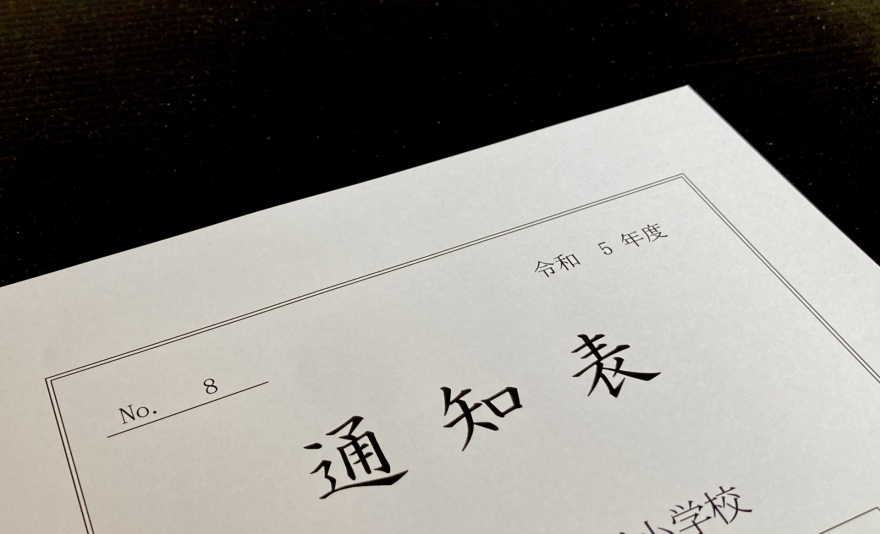 令和 5 年度
No. 8
通知表
小学校